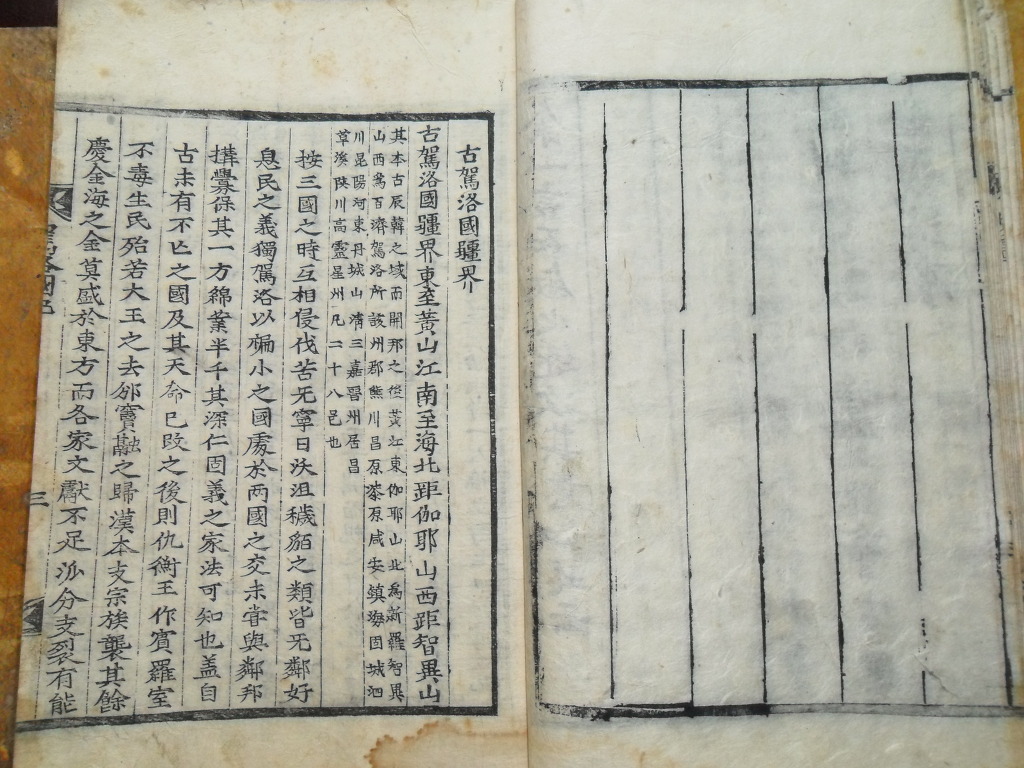 古駕洛國疆界
古駕洛國疆界東至黃山江南至海北距伽耶山西距智異山
其本古辰韓之域而開那之後黃江東伽耶山北爲新羅智異
山西爲百濟駕洛所該州郡熊川昌原漆原咸安鎮海固城泗
川昆陽河東丹城山淸三嘉晋州居昌
草溪陜川高靈星州凡二十八邑也
按三國之時互相侵伐苦无寧日沃沮穢貊之類皆无鄰好
息民之義獨駕洛以褊小之國處於两國之交未甞與鄰邦
搆釁保其一方綿業半千其深仁固義之家法可知也盖自
古未有不亾之國及其天命已改之後則仇衡王作賓羅室
不毒生民殆若大王之去邠竇融之歸漢本支宗族襲其餘
慶金海之金莫盛於東方而各家文獻不足派分支裂有能
三